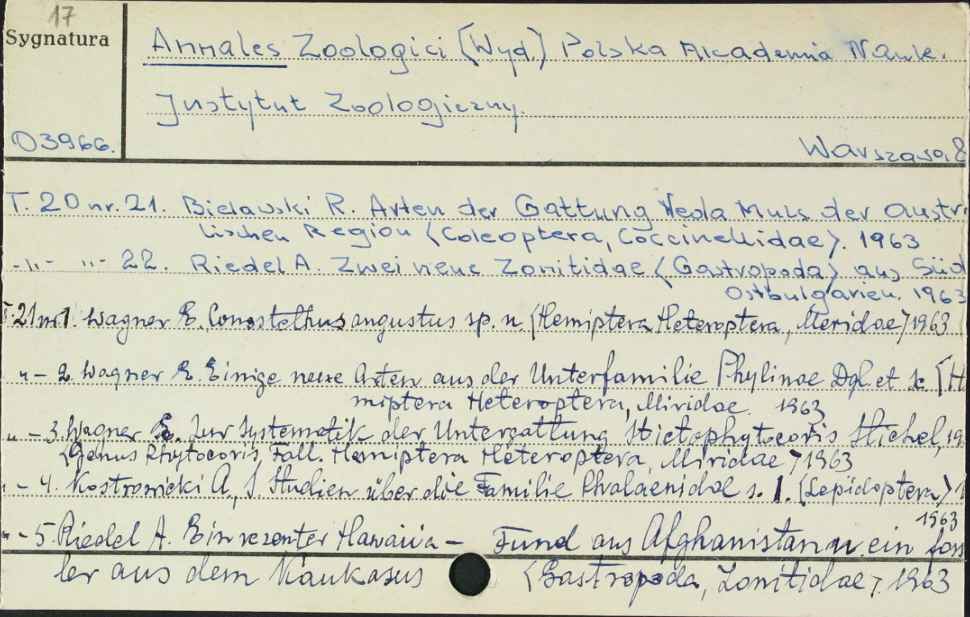 17
Sygnatura
Annales Zoologici (Wyd.) Polska Akademia Nauk.
Instytut Zoologiczny.
03966.
Warszawa, 8
T. 20 nr. 21. Bielawski R. Arten der Gattung Veda Muls der austr
lischen Region <Coleoptera, Coccinellidae>. 1963
-"- "- 22. Riedel A. Zwei neue Zonitidae <Gastropoda> aus Süd
Ostbulgarien. 1963
T. 21 nr 1. Wagner E. Conostethus angustus sp. n. <Hemiptera Heteroptera, Meridae> 1963
"- 2. Wagner E. Einige neue Arten aus der Unterfamilie Phylinae Dgl et Sc. <H
miptera Heteroptera, Miridae. 1963
"- 3. Wagner E. Zur Systematik der Untergattung Stictophytocoris Stichel, 19
<Genus Phytocoris Fall. Hemiptera Heteroptera, Miridae> 1963
"- 4. Kostrowicki A. S. Studien über die Familie Phalaenidae s. l. <Lepidoptera> 1
1963
"- 5. Riedel A. Ein rezenter Hawaiia - Fund aus Afghanistan u. ein fossi
ler aus dem Kaukasus <Gastropoda, Zonitidae>. 1963